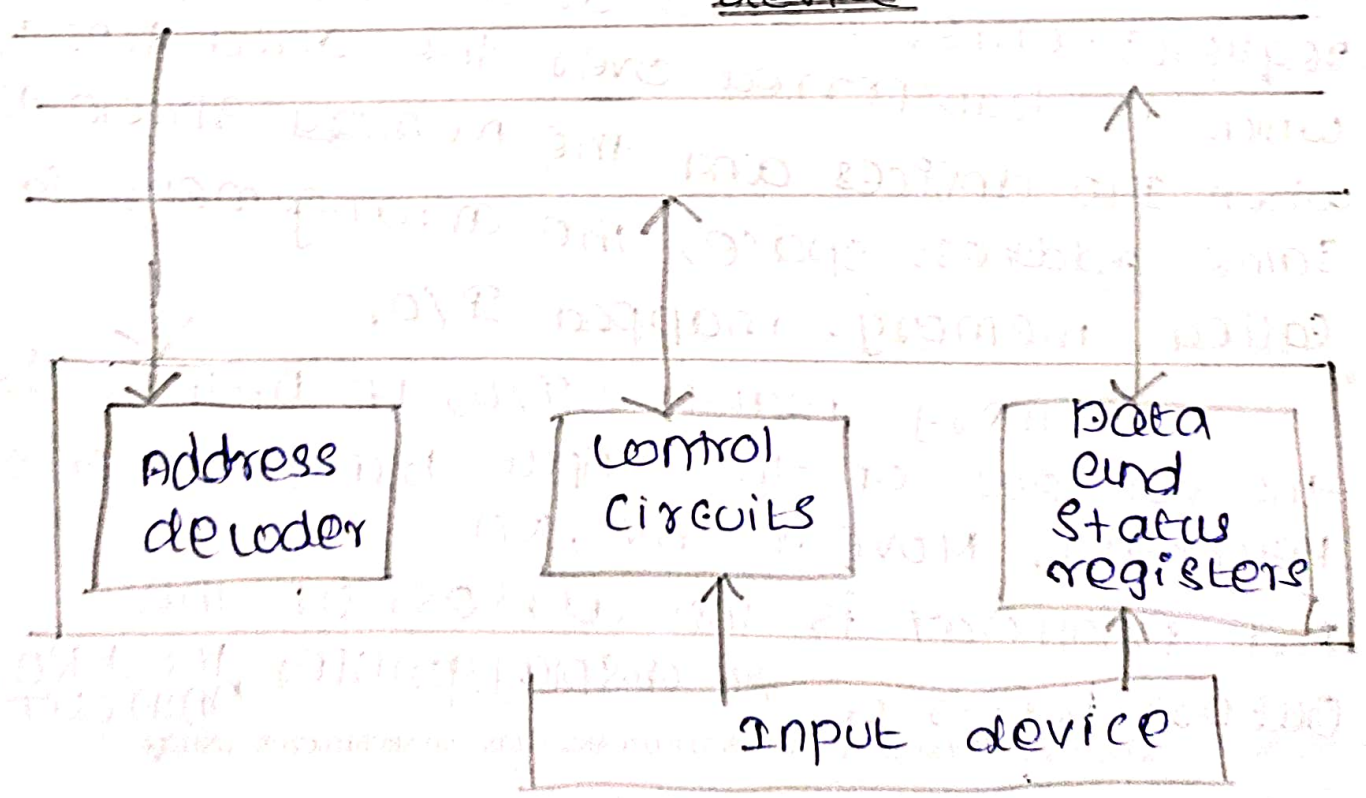 Address
decoder
Control
Circuits
Data
and
Status
registers
Input device